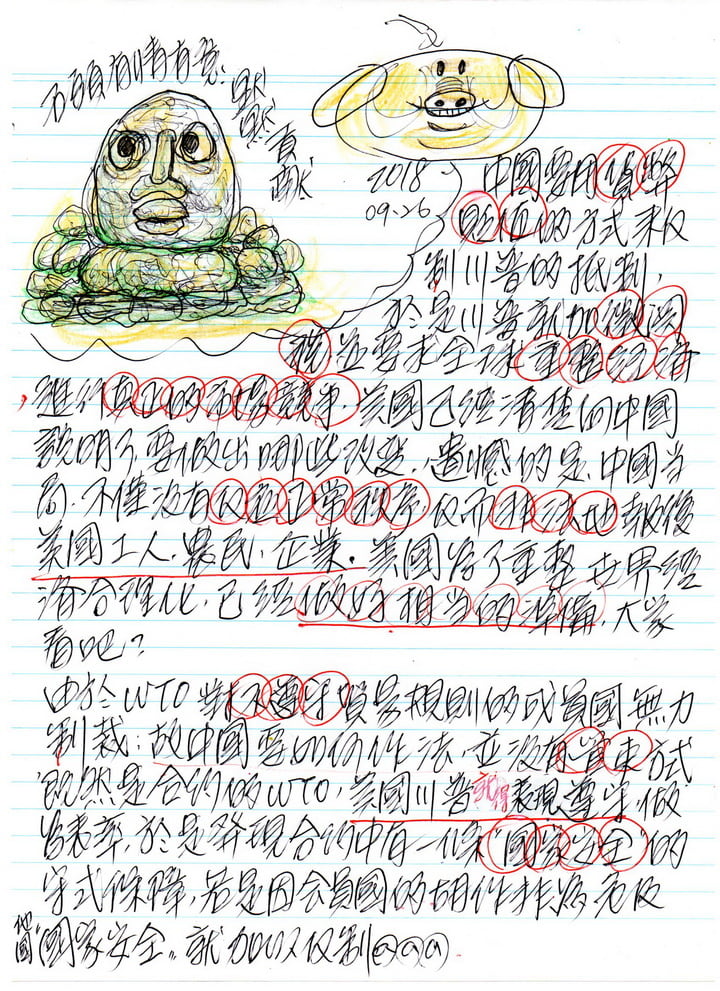 石頭有情有意.默默貢献
2018
09.26
中國要用貨幣
貶值的方式來反
制川普的抵制,
於是川普就加徵關
稅並要求全球重整經濟
,進行真正的市場競爭.美國已經清楚向中國
說明了要做出哪些改變.遺憾的是.中國当
局.不僅沒有反應正常秩序,反而非法地報復
美國工人.農民.企業.美國為了重整世界經
濟合理化.已經做好相当的準備.大家
看吧?
由於WTO 對不遵守貿易規則的成員國無力
制裁:故中國要如何作法,並沒有管束方式
既然是合約的WTO,美國川普就得表現遵守.做
為表率,於是發現合約中有一條"國家安全"的
守式保障,若是因会員國的胡作非為危及
他國"國家安全"就加以反制@@@